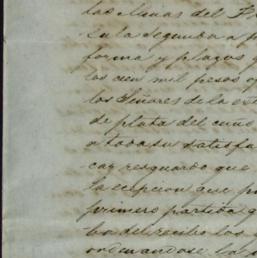 las Minas del F
En la segunda a p
forma y plazos q
los cien mil pesos q
los Señores de la ex
de plata del cuño
a toda su satisfa
caz resguardo que
la ecepcion que p
primero partida q
ba del recibo los q
ordenandose la